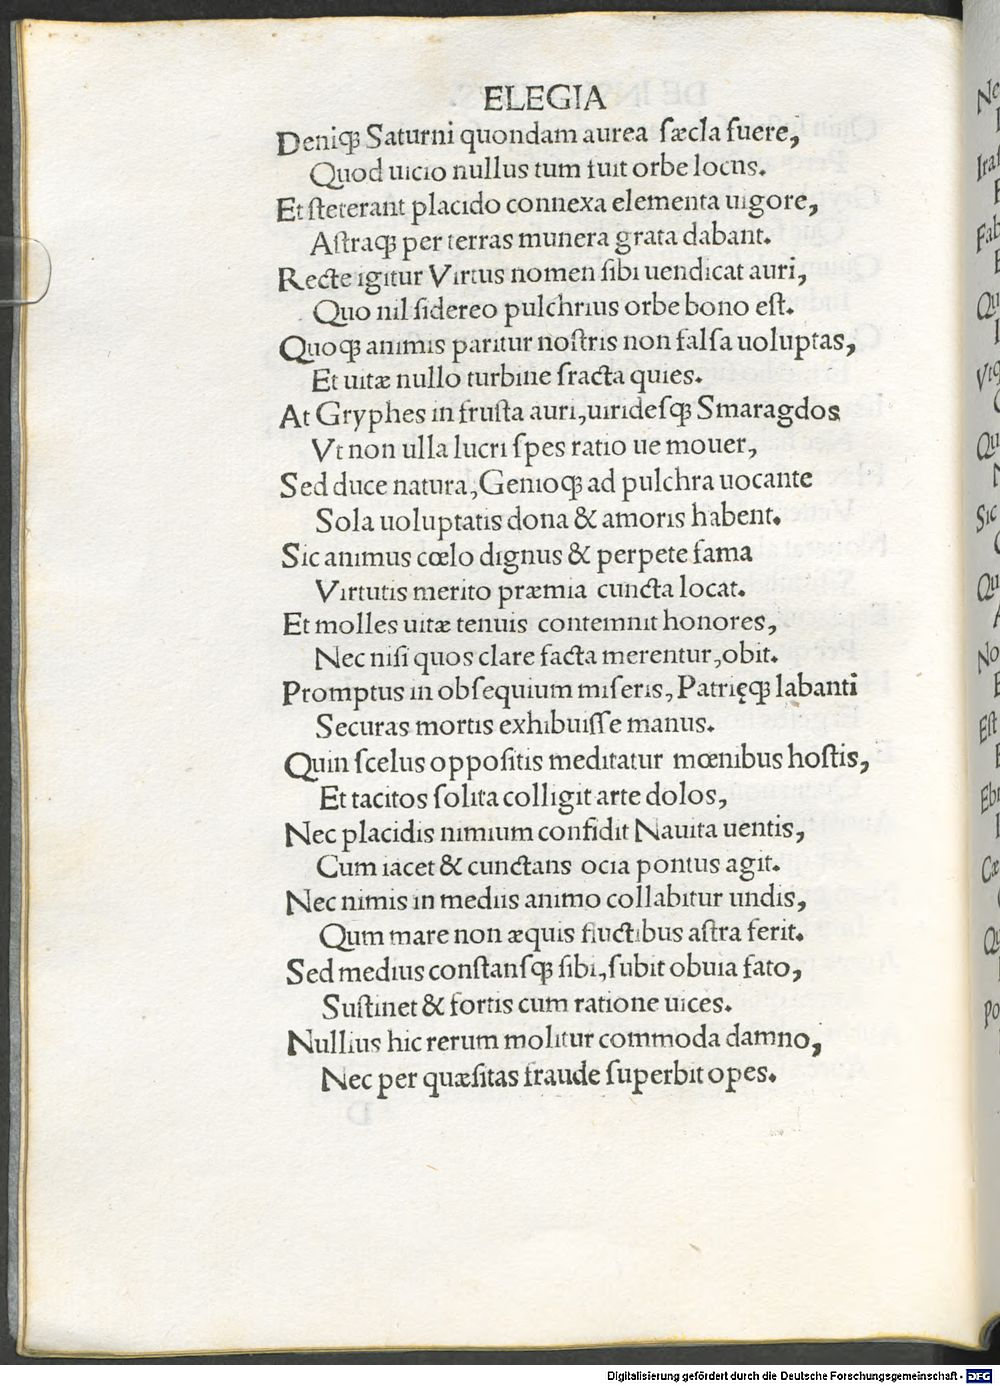 ELEGIA
Deniqꝫ Saturni quondam aurea ſæcla fuere,
Quod uicio nullus tum fuit orbe locus.
Et ſteterant placido connexa elementa uigore,
Aſtraqꝫ per terras munera grata dabant.
Recte igitur Virtus nomen ſibi uendicat auri,
Quo nil ſidereo pulchrius orbe bono eſt.
Quoqꝫ animis paritur noſtris non falſa uoluptas,
Et uitæ nullo turbine fracta quies.
At Gryphes in fruſta auri, uirideſqꝫ Smaragdos
Vt non ulla lucri ſpes ratio ue mouer,
Sed duce natura, Genioqꝫ ad pulchra uocante
Sola uoluptatis dona & amoris habent.
Sic animus cœlo dignus & perpete fama
Virtutis merito præmia cuncta locat.
Et molles uitæ tenuis contemnit honores,
Nec niſi quos clare facta merentur, obit.
Promptus in obſequium miſeris, Patrięqꝫ labanti
Securas mortis exhibuiſſe manus.
Quin ſcelus oppoſitis meditatur mœnibus hoſtis,
Et tacitos ſolita colligit arte dolos,
Nec placidis nimium confidit Nauita uentis,
Cum iacet & cunctans ocia pontus agit.
Nec nimis in mediis animo collabitur undis,
Qum mare non æquis fluctibus aſtra ferit.
Sed medius conſtanſqꝫ ſibi, ſubit obuia fato,
Suſtinet & fortis cum ratione uices.
Nullius hic rerum molitur commoda damno,
Nec per quæſitas fraude ſuperbit opes.
Digitalisierung gefördert durch die Deutsche Forschungsgemeinschaft - DFG